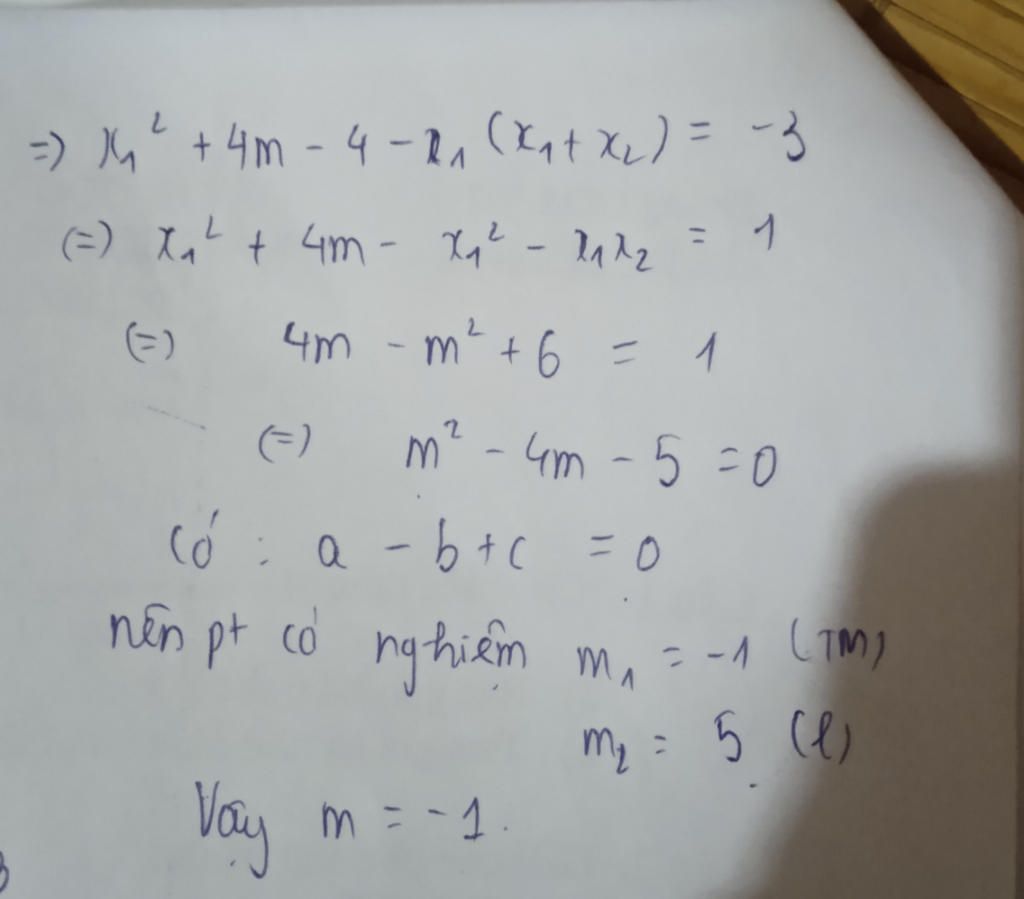 =) x₁² + 4m - 4 - x₁ (x₁ + x₂) = -3
(=) x₁² + 4m - x₁² - x₁x₂ = 1
(=) 4m - m² + 6 = 1
(=) m² - 4m - 5 = 0
Có : a - b + c = 0
nên pt có nghiệm m₁ = -1 (TM)
m₂ = 5 (l)
Vậy m = -1.